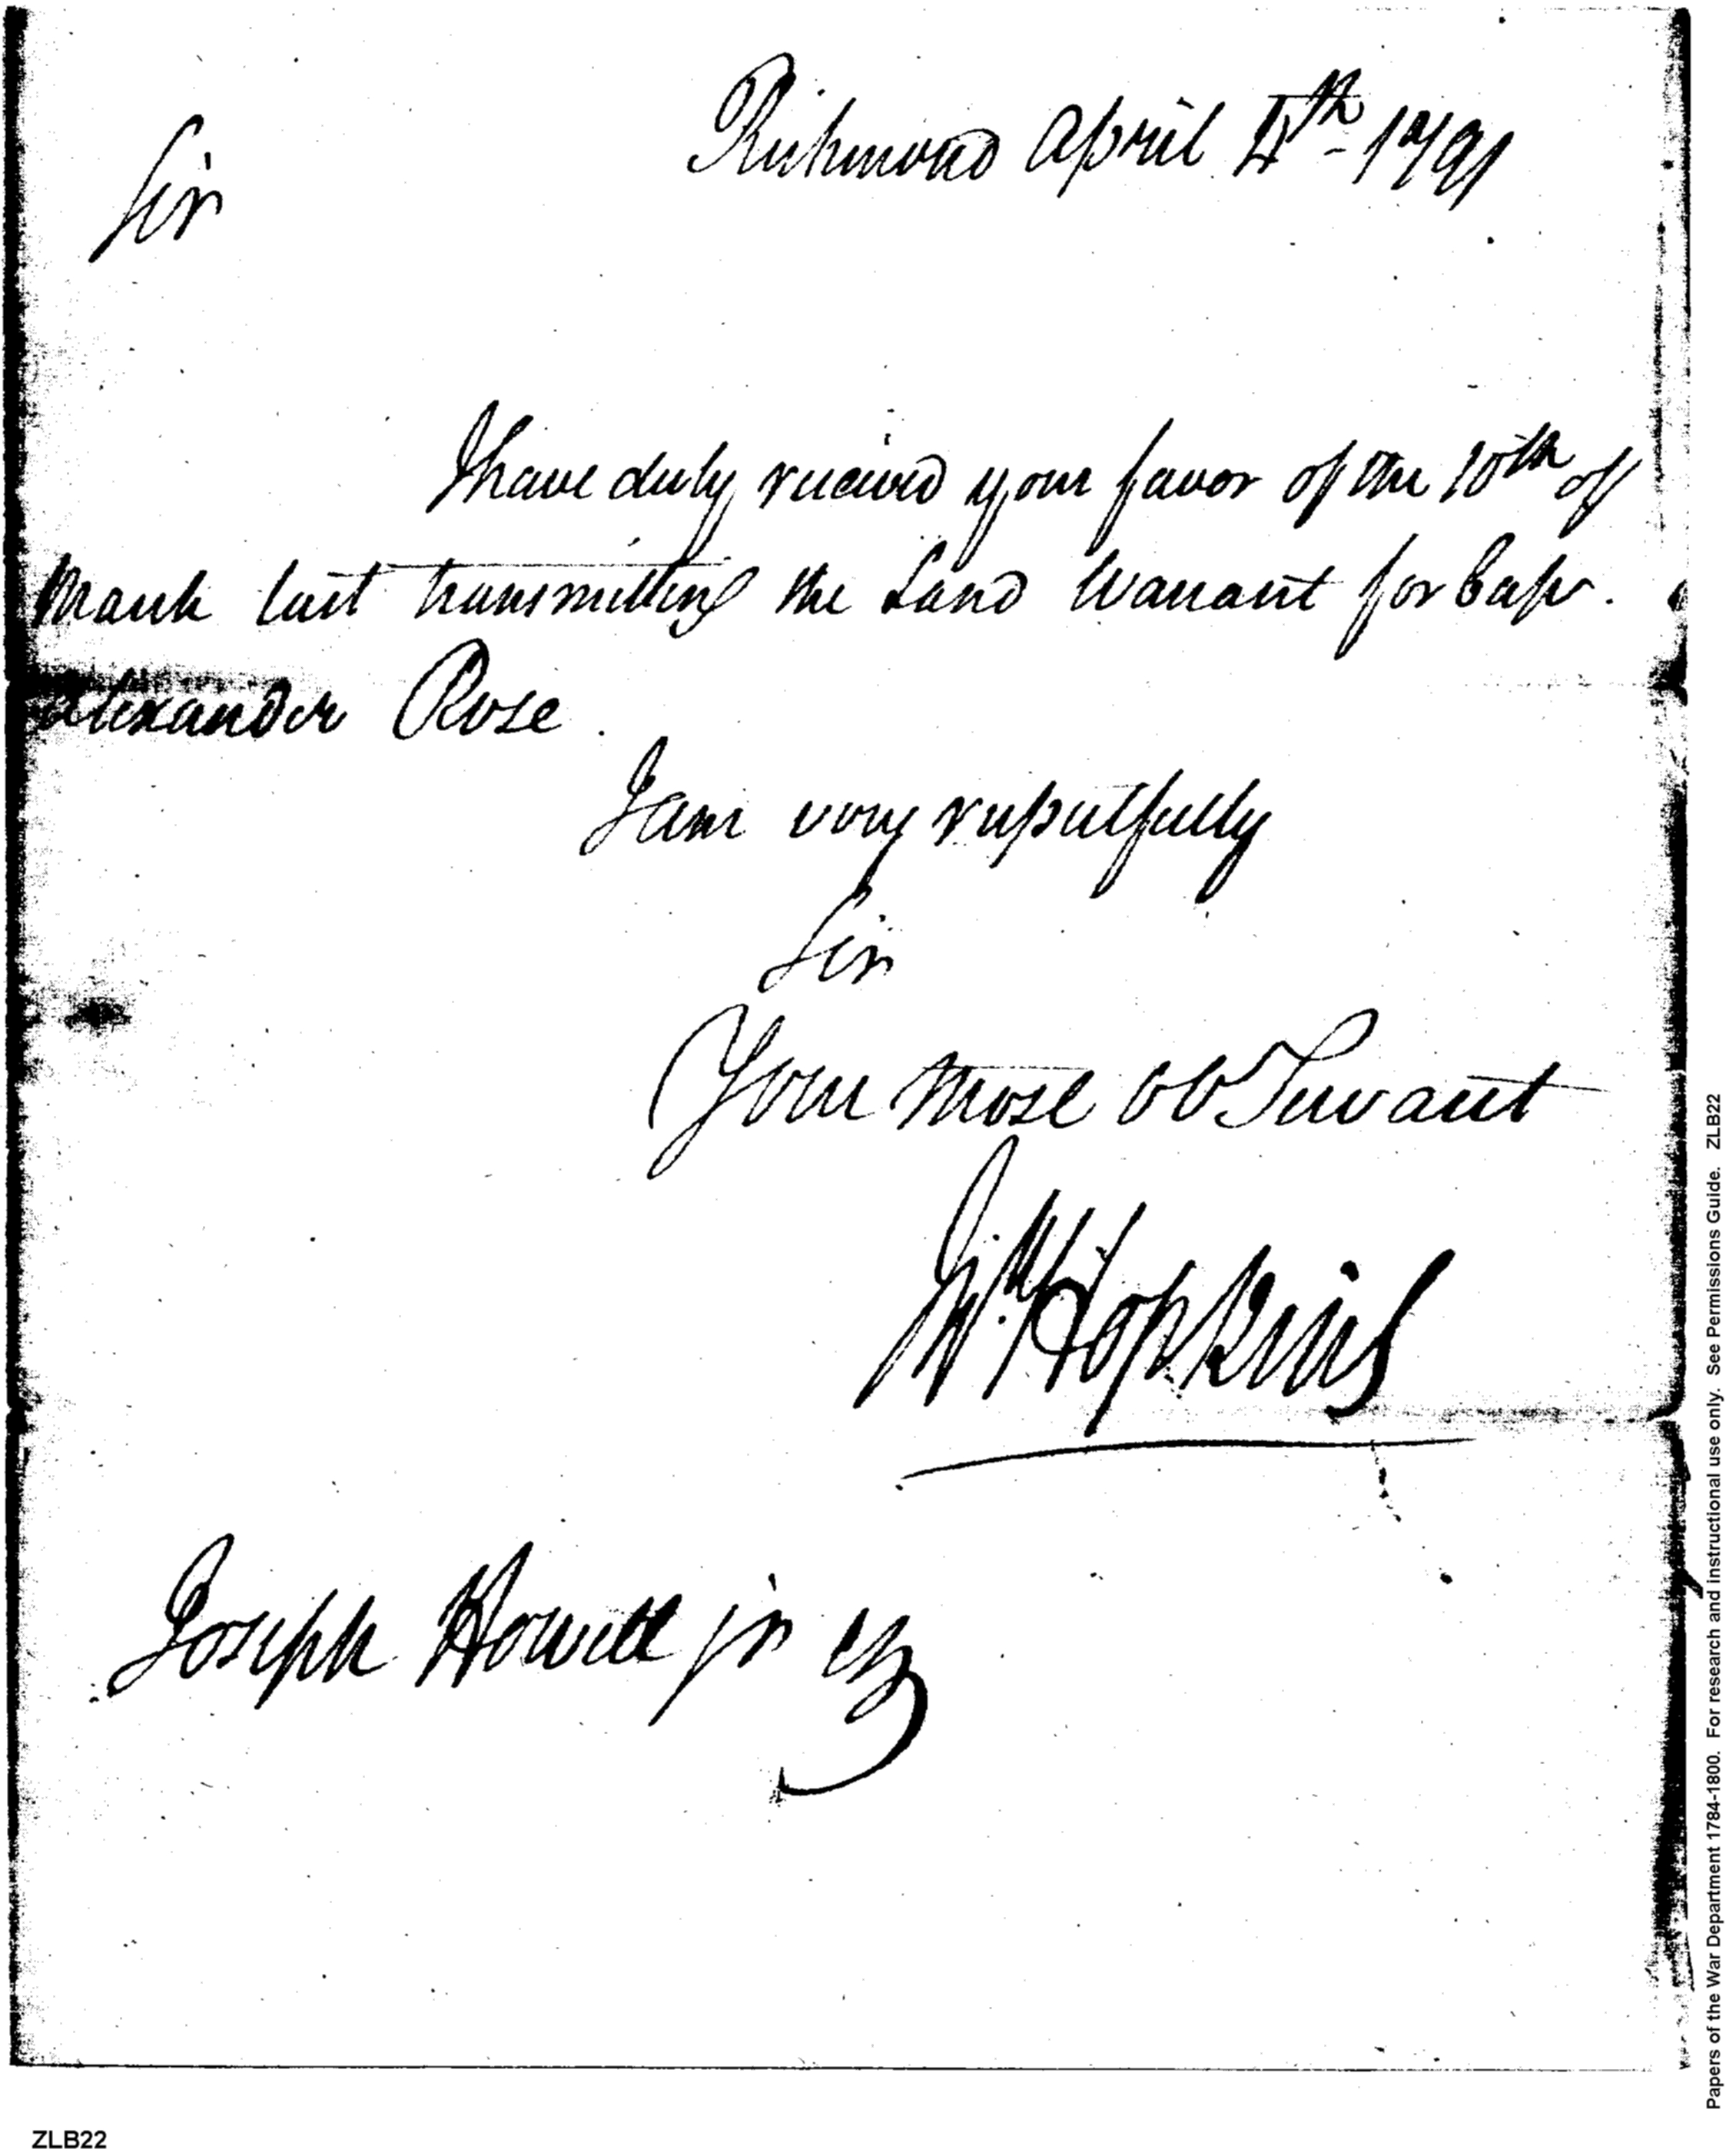 Richmond April 4th - 1791
Sir
I have duly received your favor of the 10th of
March last transmitting the Land Warrant for Cap.
Alexander Rose.
I am very respectfully
Sir
Your most ob Servant
Jn Hopkins
Joseph Howell jr esq
Papers of the War Department 1784-1800. For research and instructional use only. See Permissions Guide. ZLB22
ZLB22